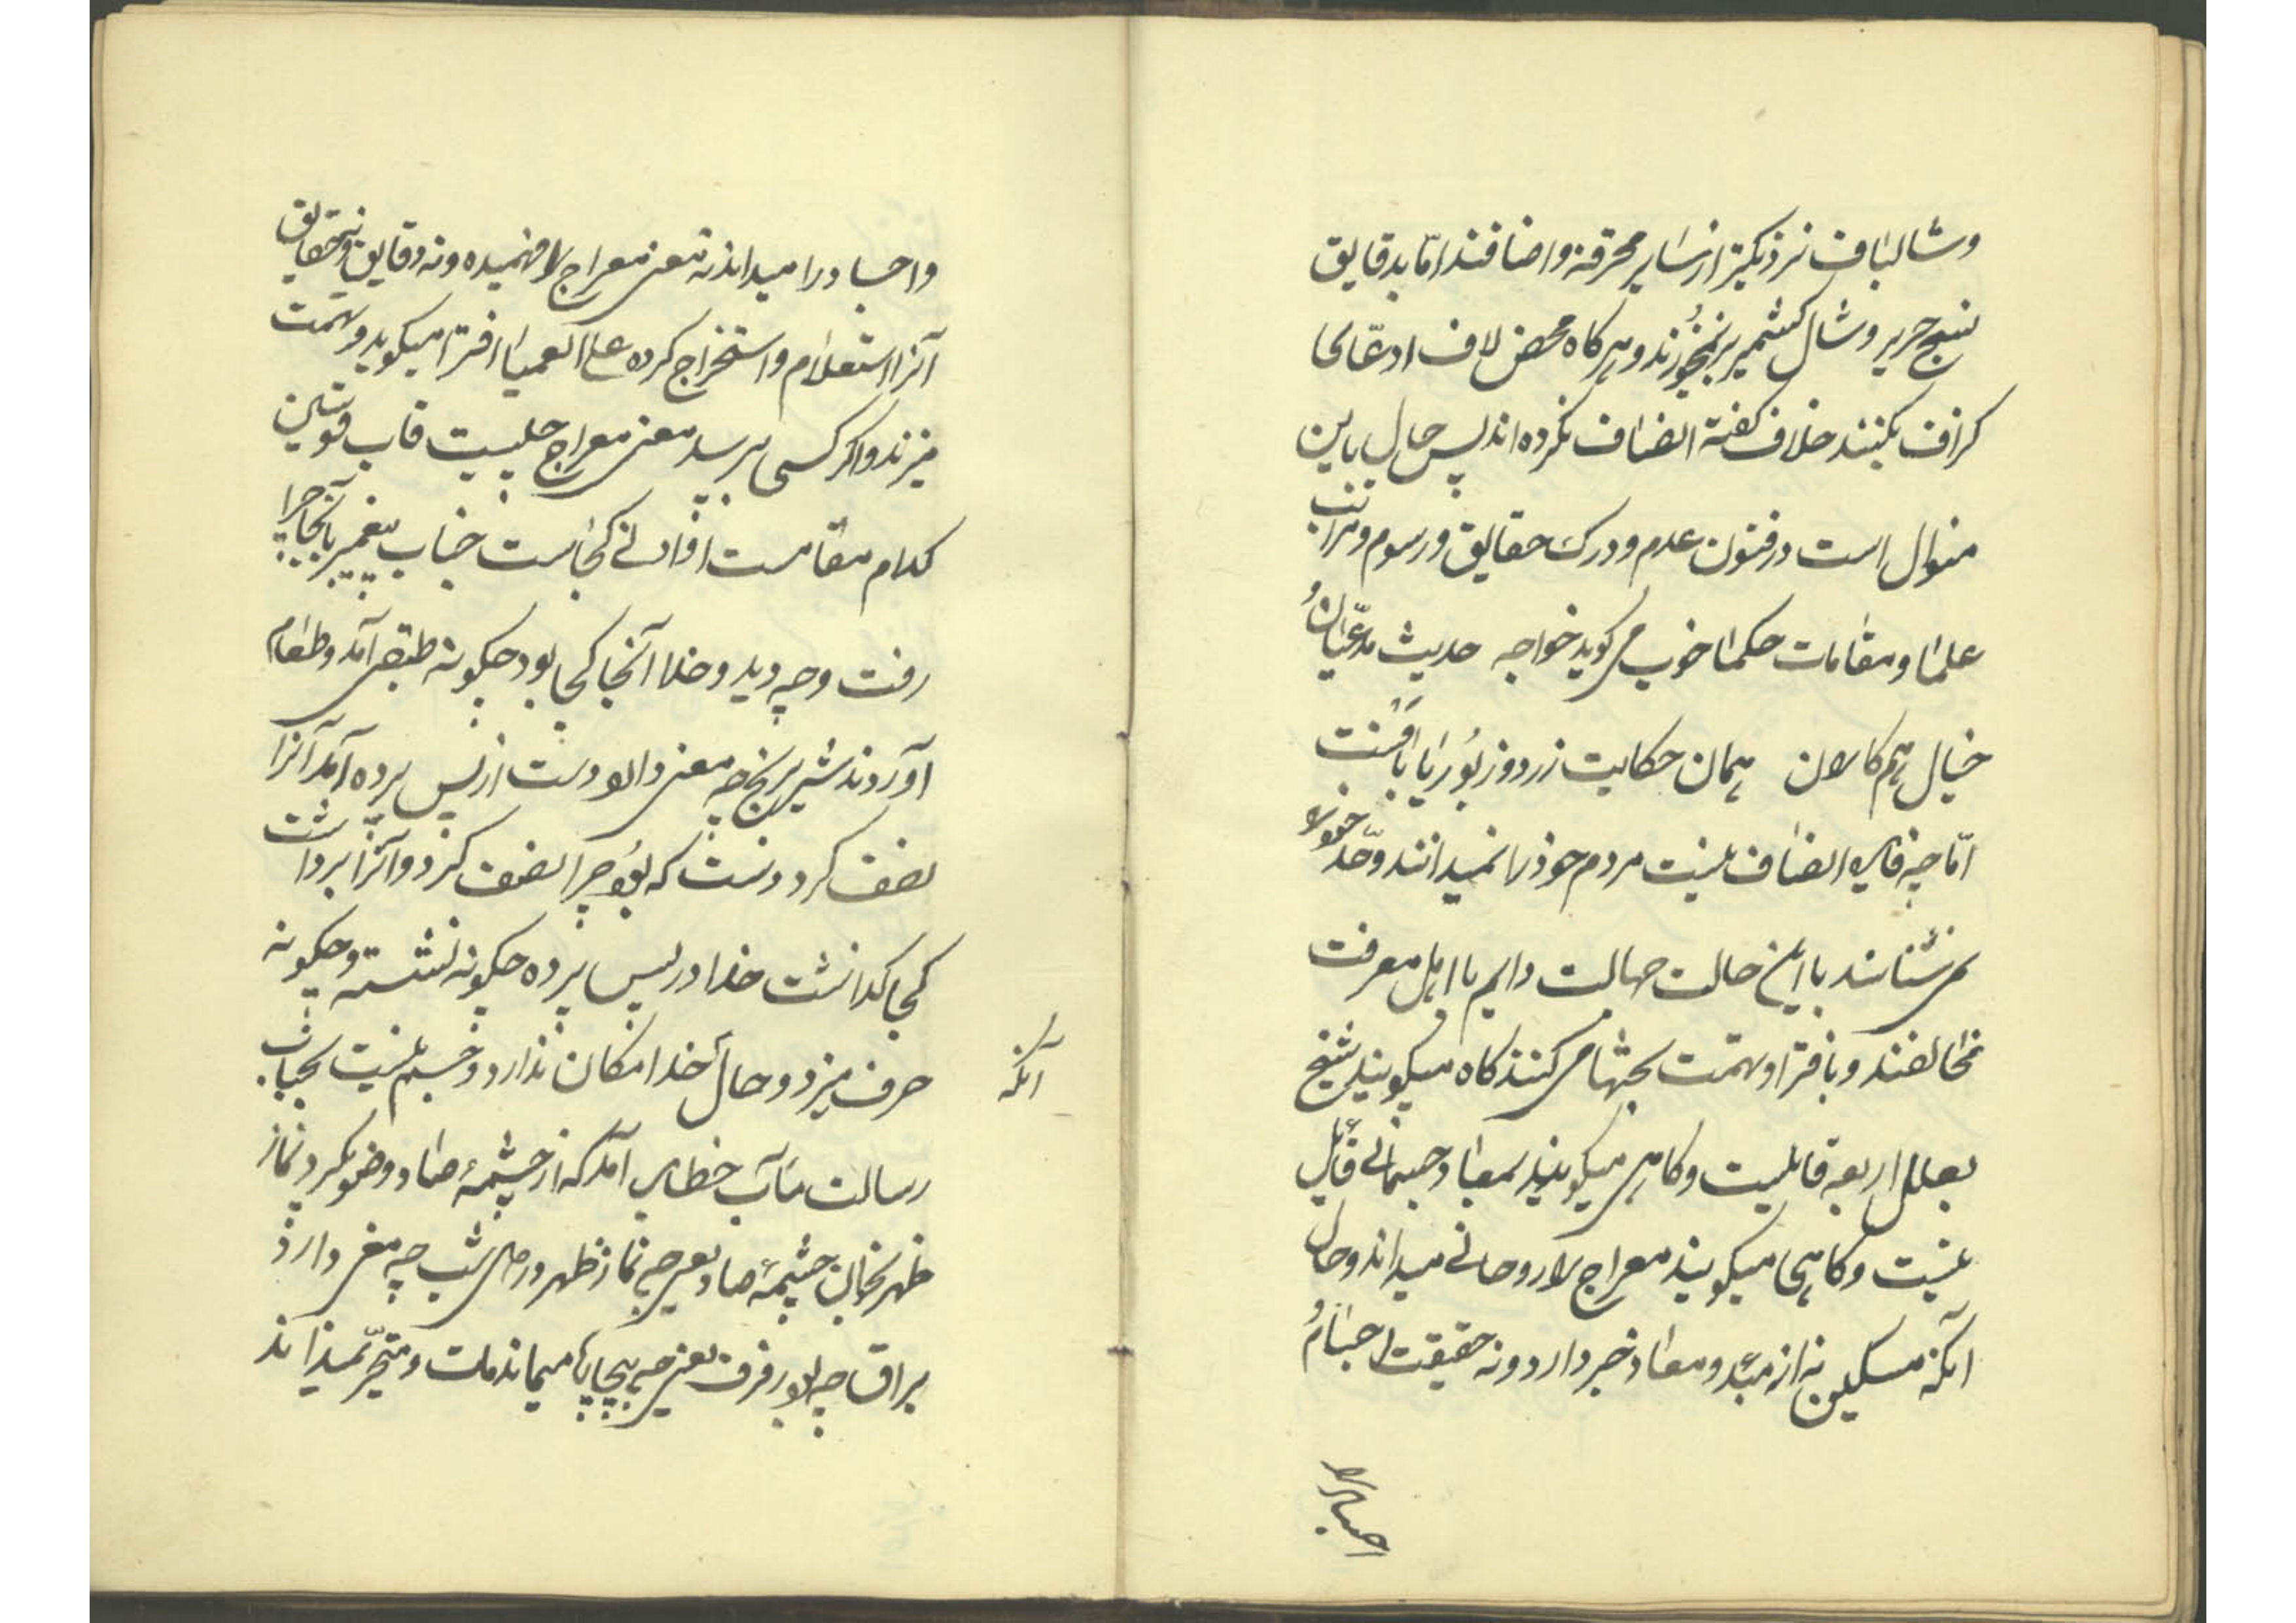 وشالباف نزدیکتر از سایر محرقه و اصنافند امّا بدقایق
نسج حریر و شال کشمیر برنمیخورند و هرکاه محض لاف ادعّائی
کزاف بکنند خلاف کفته انصاف نکرده اند پس حال باین
منوال است در فنون علوم و درک حقایق و رسوم و مراتب
علما و مقامات حکما خوب می کوید خواجه حدیث مدّعیان و
خیال همکاران همان حکایت زردوز بوریا بافنست
امّا چه فایده انصاف نیست مردم خود را نمیدانند و حّد خود را
نمی شناسند با این حالت جهالت دایم با اهل معرفت
مخالفند و بافترا و تهمت بحثها می کنند کاه میکویند شیخ
بعلل اربعه قائل نیست و کاهی میکویند بمعاد جسمانی قائل
نیست و کاهی میکویند معراج را روحانی میداند و حال
آنکه مسکین نه از مبدء و معاد خبر دارد و نه حقیقت اجسام
اجساد را
و اجساد را میداند نه معنی معراج را فهمیده و نه دقایق و حقایق
آنرا استعلام و استخراج کرده علی العمیا افترا میکوید و تهمت
میزند و اکر کسی بپرسد معنی معراج چیست قاب قوسین
کدام مقامست او ادنی کجاست جناب پیغمبر بآنجا چرا
رفت و چه دید و خدا آنجا کجا بود چکونه طبقی آمد و طعام
آوردند شیربرنج چه معنی دارد دست از پس پرده آمد آنرا
نصف کرد دست که بود چرا نصف کرد و آنرا برداشت
کجا کذاشت خدا در پس پرده چکونه نشسته و چکونه
حرف میزد و حال آنکه خدا مکان ندارد و جسم نیست بجناب
رسالت مآب خطاب آمد که از چشمهٔ صاد وضو بکیر و نماز
ظهر بخوان چشمهٔ صاد یعنی چه نماز ظهر در دل شب چه معنی دارد
براق چه بود رفرف یعنی چه بیچاره میماند مات و متحیّر نمیداند